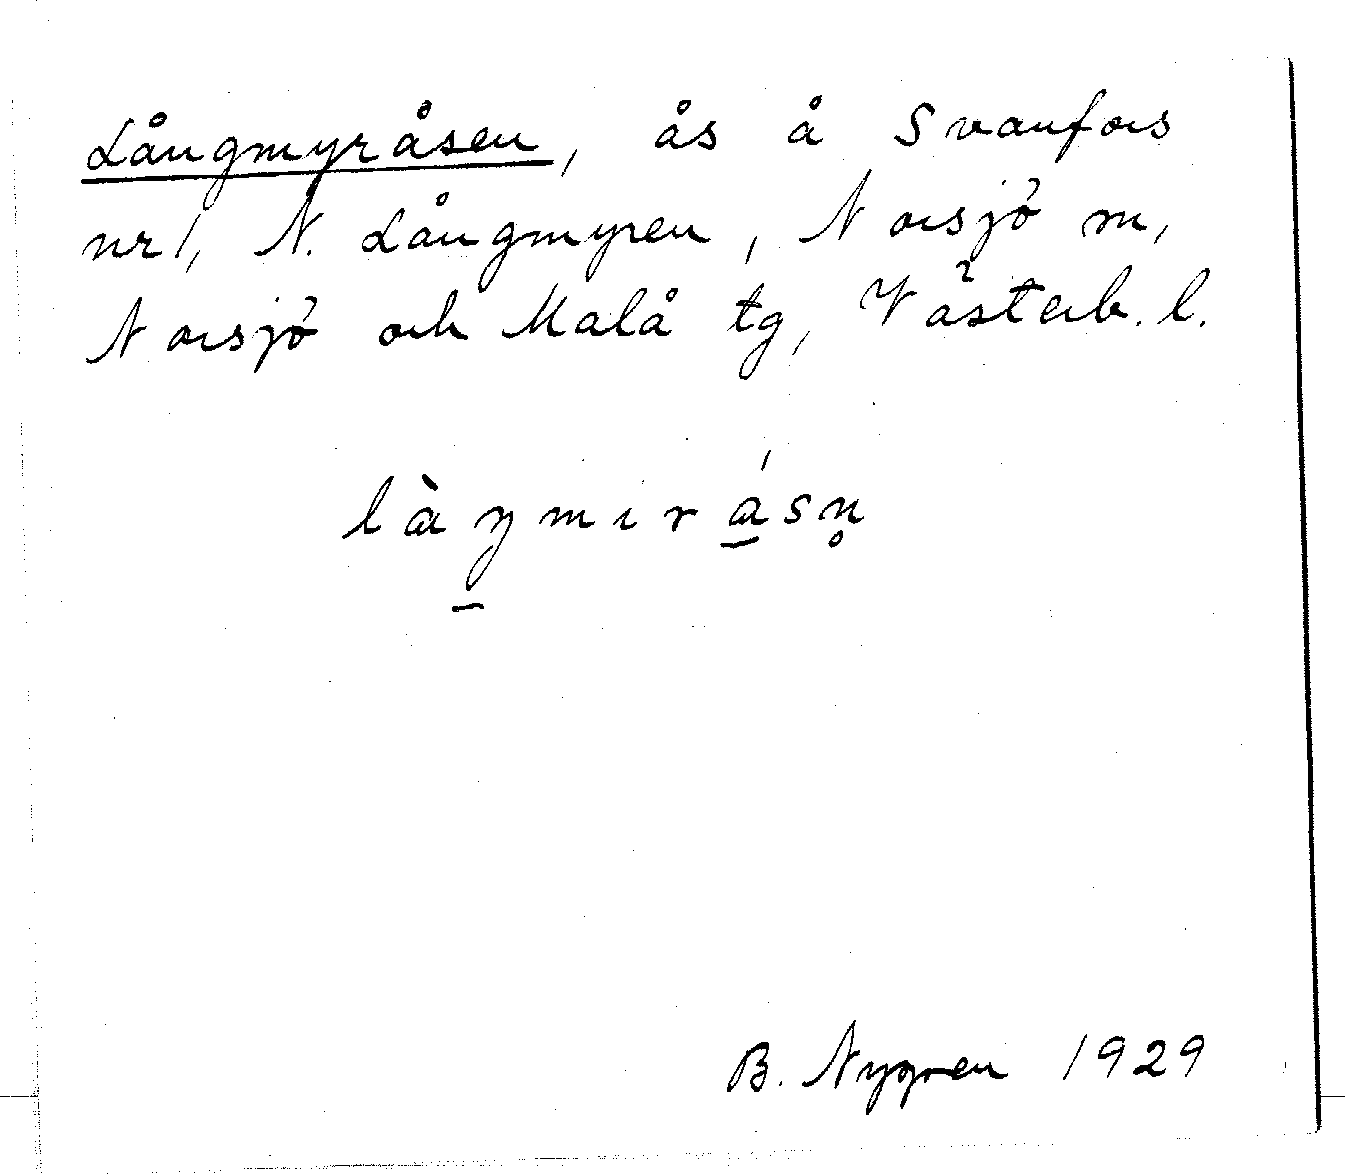 Långmyråsen, ås å Svanfors
nr 1, N. Långmyren, Norsjö m,
Norsjö och Malå tg, Västerb. l.
làŋmırá̱sn̥
B. Nygren 1929